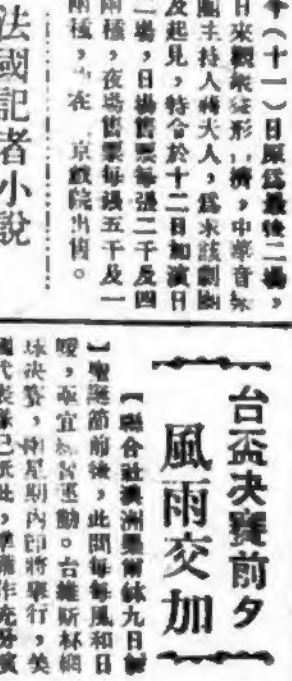 今（十一）日原爲最後二場，
日來觀衆
，中華音
主持人蔣夫人，爲求該劇
及起見，特令於十二日加演日
一場，日場售票每張二千及四
兩種，夜場售票每張五千及一
兩種，
在
京戲院出售。
法國記者小說
台盃決賽前夕
風雨交加
【聯合社澳洲
九日
】聖誕節前後，此間每每風和日
暖，
宜
運動。台維斯杯網
球決賽，
星期內即將舉行，美
國代表隊已
此，準備作充分